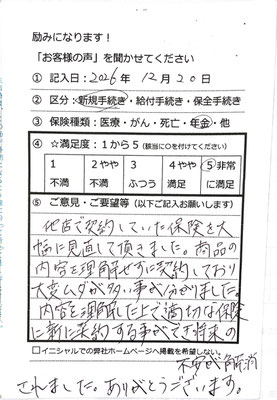 励みになります！
「お客様の声」を聞かせてください
① 記入日：2026年 12月20日
② 区分：新規手続き・給付手続き・保全手続き
③ 保険種類：医療・がん・死亡・年金・他
④ ☆満足度：1から5（該当に○を付けてください）
1 2やや 3 4やや ⑤非常
不満 不満 ふつう 満足 に満足
⑤ ご意見・ご要望等（以下ご記入お願いします）
他店で契約していた保険を大
幅に見直して頂きました。商品の
内容を理解せずに契約しており
大変ムダが多い事が分かりました。
内容を理解した上で適切な保険
に新に契約する事ができ将来の
□イニシャルでの弊社ホームページへ掲載を希望しない。
不安も解消
されました。ありがとうございます。